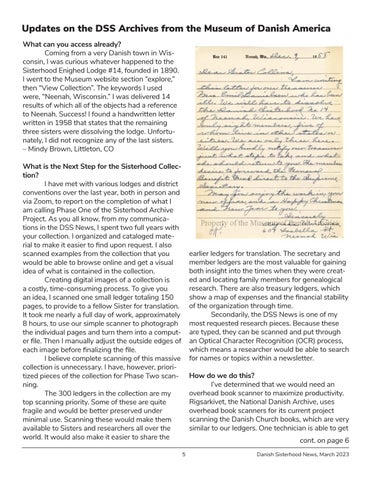 Updates on the DSS Archives from the Museum of Danish America
What can you access already?
Coming from a very Danish town in Wis-
consin, I was curious whatever happened to the
Sisterhood Enighed Lodge #14, founded in 1890.
I went to the Museum website section “explore,”
then “View Collection”. The keywords I used
were, “Neenah, Wisconsin.” I was delivered 14
results of which all of the objects had a reference
to Neenah. Success! I found a handwritten letter
written in 1958 that states that the remaining
three sisters were dissolving the lodge. Unfortu-
nately, I did not recognize any of the last sisters.
- Mindy Brown, Littleton, CO
What is the Next Step for the Sisterhood Collec-
tion?
I have met with various lodges and district
conventions over the last year, both in person and
via Zoom, to report on the completion of what I
am calling Phase One of the Sisterhood Archive
Project. As you all know, from my communica-
tions in the DSS News, I spent two full years with
your collection. I organized and cataloged mate-
rial to make it easier to find upon request. I also
scanned examples from the collection that you
would be able to browse online and get a visual
idea of what is contained in the collection.
Creating digital images of a collection is
a costly, time-consuming process. To give you
an idea, I scanned one small ledger totaling 150
pages, to provide to a fellow Sister for translation.
It took me nearly a full day of work, approximately
8 hours, to use our simple scanner to photograph
the individual pages and turn them into a comput-
er file. Then I manually adjust the outside edges of
each image before finalizing the file.
I believe complete scanning of this massive
collection is unnecessary. I have, however, priori-
tized pieces of the collection for Phase Two scan-
ning.
The 300 ledgers in the collection are my
top scanning priority. Some of these are quite
fragile and would be better preserved under
minimal use. Scanning these would make them
available to Sisters and researchers all over the
world. It would also make it easier to share the
Box 141
Dec. 9, 1958
Dear Sister
I am writing
this letter for our treasurer
Mrs.
of Neenah, Wisconsin. We have
only eight members, five of
whom live in other states or
cities. We are only three here.
Will you kindly notify our Treasurer
just what steps to take and what
she should return to you.
Secretary.
May you enjoy the work in your
new office and a Happy Christmas
and New Year to you.
Sincerely
Property of the Museum
Neenah Wis
earlier ledgers for translation. The secretary and
member ledgers are the most valuable for gaining
both insight into the times when they were creat-
ed and locating family members for genealogical
research. There are also treasury ledgers, which
show a map of expenses and the financial stability
of the organization through time.
Secondarily, the DSS News is one of my
most requested research pieces. Because these
are typed, they can be scanned and put through
an Optical Character Recognition (OCR) process,
which means a researcher would be able to search
for names or topics within a newsletter.
How do we do this?
I’ve determined that we would need an
overhead book scanner to maximize productivity.
Rigsarkivet, the National Danish Archive, uses
overhead book scanners for its current project
scanning the Danish Church books, which are very
similar to our ledgers. One technician is able to get
cont. on page 6
5
Danish Sisterhood News, March 2023